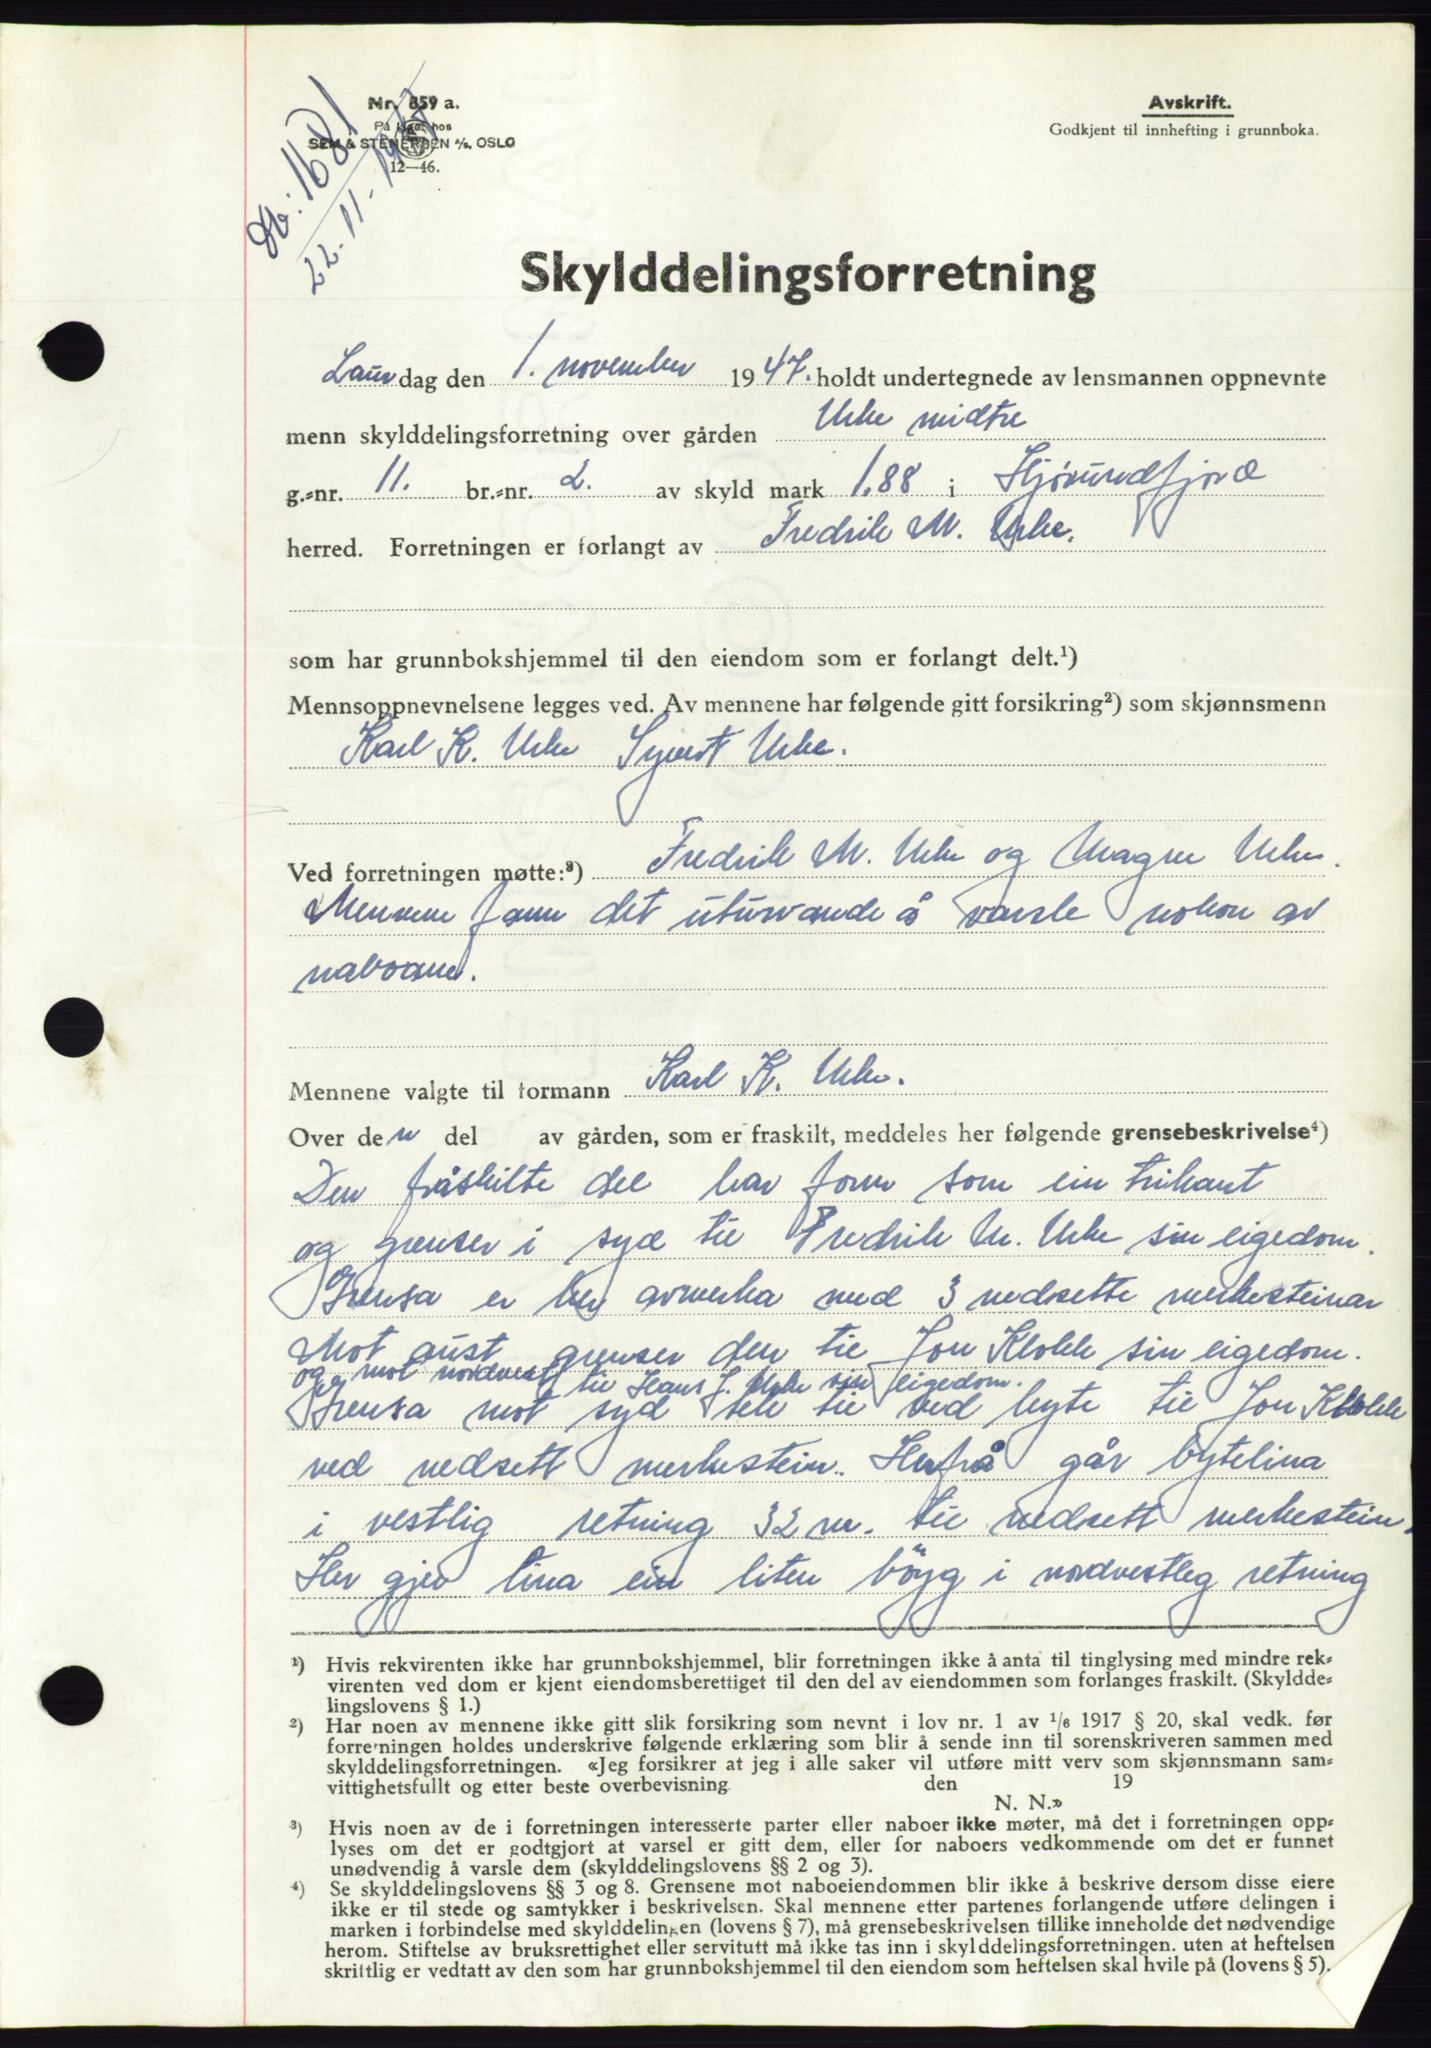 Nr. 859 a.
På lager hos
SEM & STENERSEN A/S, OSLO
12—46.
Nr: 1681
22-11-1947
Avskrift.
Godkjent til innhefting i grunnboka.
Skylddelingsforretning
Laurdag den 1. november 1947. holdt undertegnede av lensmannen oppnevnte
menn skylddelingsforretning over gården Urke midtre
g.=nr. 11. br.=nr. 2. av skyld mark 1.88 i Hjørundfjord
herred. Forretningen er forlangt av Fredrik M. Urke.
som har grunnbokshjemmel til den eiendom som er forlangt delt.¹)
Mennsoppnevnelsene legges ved. Av mennene har følgende gitt forsikring²) som skjønnsmenn
Karl K. Urke Syvert Urke.
Ved forretningen møtte:³) Fredrik M. Urke og Magne Urke.
Mennene fann det uturvande å varsle nokon av
naboane.
Mennene valgte til formann Karl K. Urke.
Over den del av gården, som er fraskilt, meddeles her følgende grensebeskrivelse⁴)
Den fråskilte del har form som ein trikant
og grenser i syd til Fredrik M. Urke sin eigedom.
Grensa er her avmerka med 3 nedsette merkesteinar
Mot aust grenser den til Jon Klokk sin eigedom.
og mot nordvest til Hans J. Urke sin eigedom.
Grensa mot syd tek til ved byte til Jon Klokk
ved nedsett merkestein. Herfrå går bytelina
i vestlig retning 32 m. til nedsett merkestein.
Her gjer lina ein liten bøyg i nordvestleg retning
¹) Hvis rekvirenten ikke har grunnbokshjemmel, blir forretningen ikke å anta til tinglysing med mindre rek=
virenten ved dom er kjent eiendomsberettiget til den del av eiendommen som forlanges fraskilt. (Skyldde=
lingslovens § 1.)
²) Har noen av mennene ikke gitt slik forsikring som nevnt i lov nr. 1 av 1/6 1917 § 20, skal vedk. før
forretningen holdes underskrive følgende erklæring som blir å sende inn til sorenskriveren sammen med
skylddelingsforretningen. «Jeg forsikrer at jeg i alle saker vil utføre mitt verv som skjønnsmann sam=
vittighetsfullt og etter beste overbevisning den 19
N. N.»
³) Hvis noen av de i forretningen interesserte parter eller naboer ikke møter, må det i forretningen opp=
lyses om det er godtgjort at varsel er gitt dem, eller for naboers vedkommende om det er funnet
unødvendig å varsle dem (skylddelingslovens §§ 2 og 3).
⁴) Se skylddelingslovens §§ 3 og 8. Grensene mot naboeiendommen blir ikke å beskrive dersom disse eiere
ikke er til stede og samtykker i beskrivelsen. Skal mennene etter partenes forlangende utføre delingen i
marken i forbindelse med skylddelingen (lovens § 7), må grensebeskrivelsen tillike inneholde det nødvendige
herom. Stiftelse av bruksrettighet eller servitutt må ikke tas inn i skylddelingsforretningen. uten at heftelsen
skriftlig er vedtatt av den som har grunnbokshjemmel til den eiendom som heftelsen skal hvile på (lovens § 5).